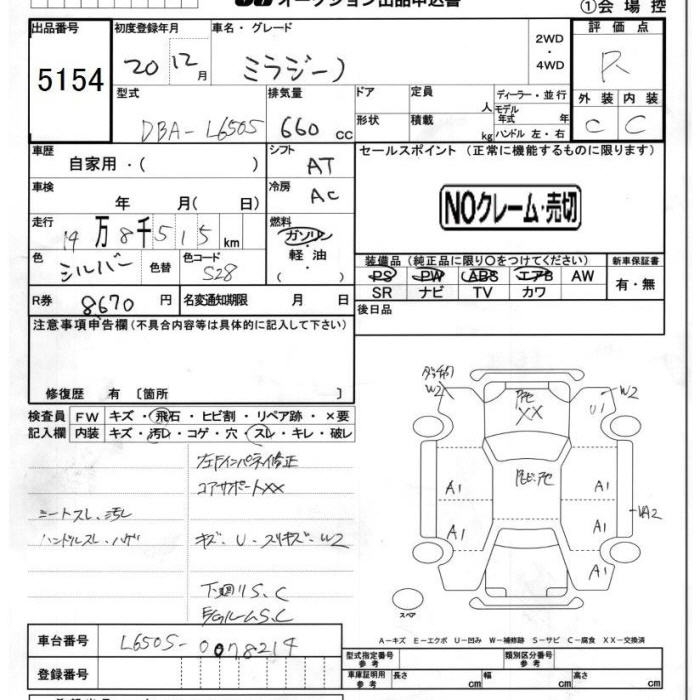 オークション出品申込書
①会場控
出品番号 初度登録年月 車名・グレード 2WD・4WD 評価点
5154 20 12月 ミラジーノ R
型式 排気量 ドア 定員 人 ディーラー・並行 外装 内装
DBA-L650S 660cc 形状 積載 kg モデル年式 年 ハンドル 左・右 C C
車歴 シフト セールスポイント (正常に機能するものに限ります)
自家用・( ) AT
車検 冷房
年 月( 日) AC
NOクレーム・売切
走行 燃料
14万8千515km ガソリン・軽油・( )
色 色替 色コード 装備品(純正品に限り○をつけてください) 新車保証書
シルバー S28 PS PW ABS エアB AW 有・無
SR ナビ TV カワ
R券 8670円 名変通知期限 月 日 後日品
注意事項申告欄(不具合内容等は具体的に記入して下さい)
修復歴 有 〔箇所 〕
検査員 FW キズ・飛石・ヒビ割・リペア跡・×要
記入欄 内装 キズ・汚れ・コゲ・穴・スレ・キレ・破レ
左Fインパネイ修正
コアサポートXX
シートスレ、汚れ
ハンドルスレ・ハゲ キズ・U・スリキズ・W2
下廻りS、C
EgルームS、C
W2 W2
XX U1
A1 A1
A1 A1 UA2
A1
スペア
A-キズ E-エクボ U-凹み W-補修跡 S-サビ C-腐食 XX-交換済
車台番号 L650S-0078214
型式指定番号 参考 類別区分番号 参考
登録番号 車庫証明用 参考 長さ cm 幅 cm 高さ cm